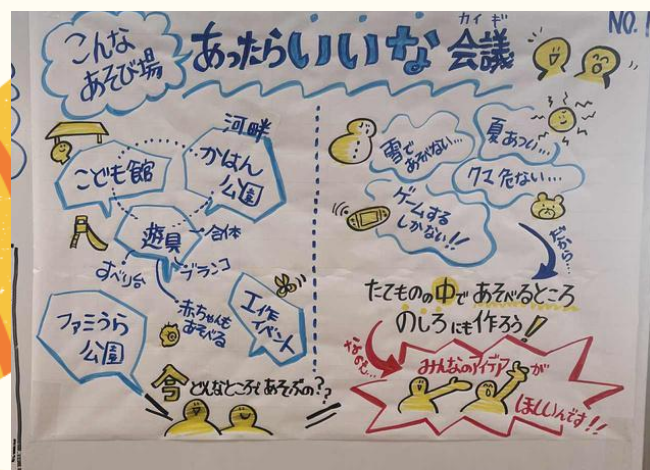 こんな
あそび場
あったらいいな会議
カイギ
NO.1
こども館
河畔
かはん
公園
遊具
合体
すべり台
ブランコ
赤ちゃんも
あそべる
工作
イベント
ファミうら
公園
今どんなところであそぶの??
雪で
あそべない…
夏あつい…
クマ危ない…
ゲームする
しかない!!
だから…
たてものの中であそべるところ
のしろにも作ろう!
みんなのアイデアが
ほしいんです!!